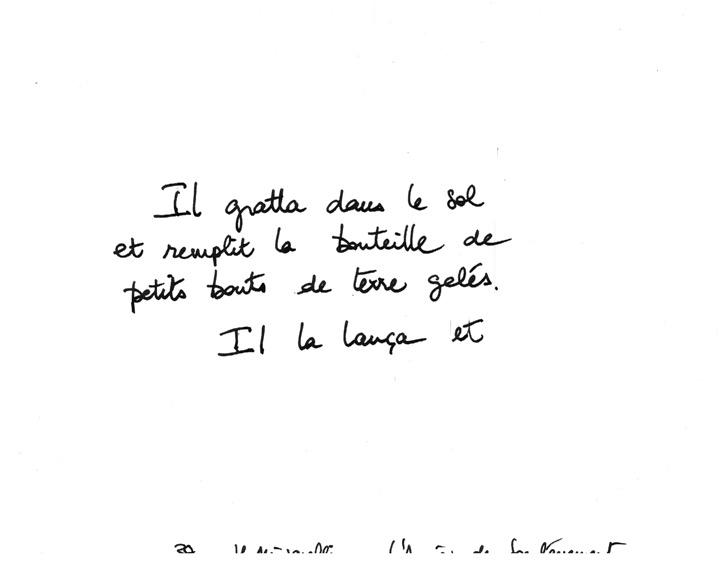 Il gratta dans le sol
et remplit la bouteille de
petits bouts de terre gelés.
Il la lança et